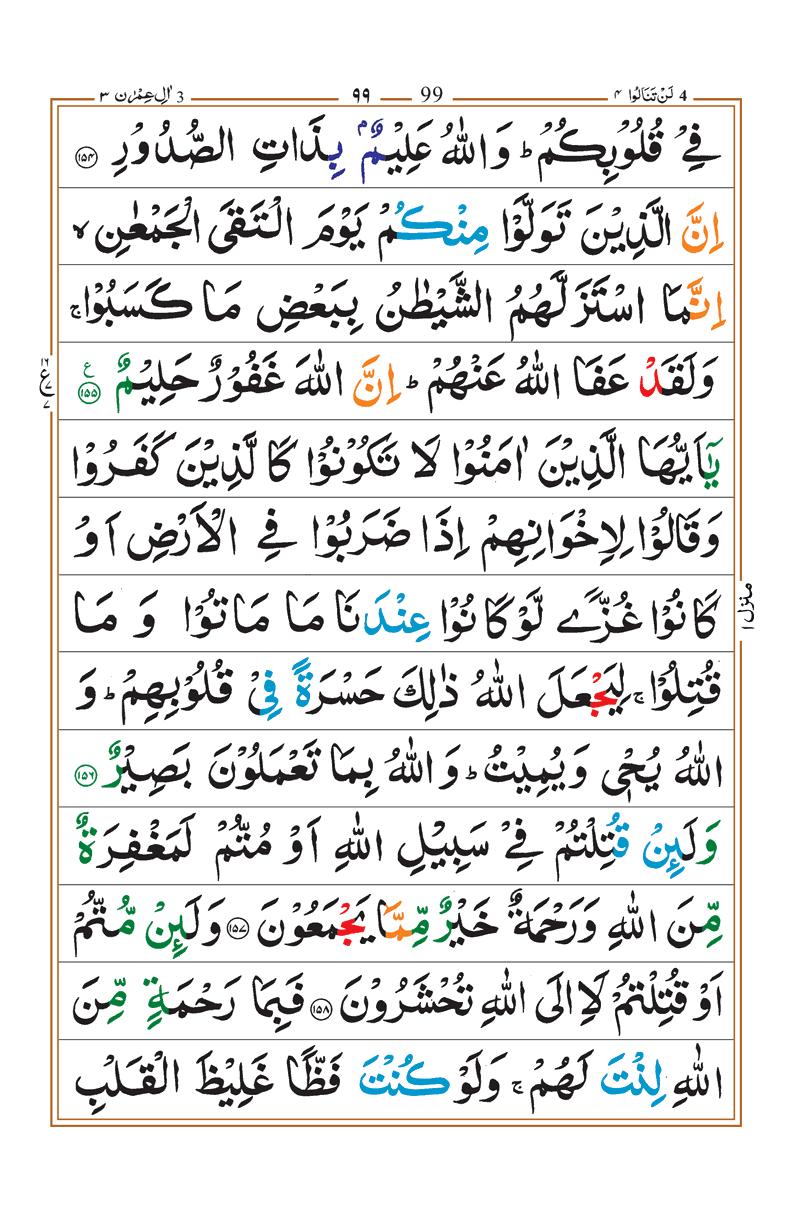 4 لَنْ تَنَالُوْا ۴ 99 ۹۹ 3 اٰلِ عِمْرٰن ۳
فِیْ قُلُوْبِكُمْ ؕ وَاللّٰهُ عَلِیْمٌۢ بِذَاتِ الصُّدُوْرِ ﴿۱۵۴﴾
اِنَّ الَّذِیْنَ تَوَلَّوْا مِنْكُمْ یَوْمَ الْتَقَی الْجَمْعٰنِ ۙ
اِنَّمَا اسْتَزَلَّهُمُ الشَّیْطٰنُ بِبَعْضِ مَا كَسَبُوْا ۚ
وَلَقَدْ عَفَا اللّٰهُ عَنْهُمْ ؕ اِنَّ اللّٰهَ غَفُوْرٌ حَلِیْمٌ ﴿۱۵۵﴾ ع
یٰۤاَیُّهَا الَّذِیْنَ اٰمَنُوْا لَا تَكُوْنُوْا كَالَّذِیْنَ كَفَرُوْا
وَقَالُوْا لِاِخْوَانِهِمْ اِذَا ضَرَبُوْا فِی الْاَرْضِ اَوْ
كَانُوْا غُزًّی لَّوْ كَانُوْا عِنْدَنَا مَا مَاتُوْا وَ مَا
قُتِلُوْا ۚ لِیَجْعَلَ اللّٰهُ ذٰلِكَ حَسْرَةً فِیْ قُلُوْبِهِمْ ؕ وَ
اللّٰهُ یُحْیٖ وَیُمِیْتُ ؕ وَاللّٰهُ بِمَا تَعْمَلُوْنَ بَصِیْرٌ ﴿۱۵۶﴾
وَلَىِٕنْ قُتِلْتُمْ فِیْ سَبِیْلِ اللّٰهِ اَوْ مُتُّمْ لَمَغْفِرَةٌ
مِّنَ اللّٰهِ وَرَحْمَةٌ خَیْرٌ مِّمَّا یَجْمَعُوْنَ ﴿۱۵۷﴾ وَلَىِٕنْ مُّتُّمْ
اَوْ قُتِلْتُمْ لَاِالَی اللّٰهِ تُحْشَرُوْنَ ﴿۱۵۸﴾ فَبِمَا رَحْمَةٍ مِّنَ
اللّٰهِ لِنْتَ لَهُمْ ۚ وَلَوْ كُنْتَ فَظًّا غَلِیْظَ الْقَلْبِ
ع ۱۶ ۷ ۷
منزل ۱